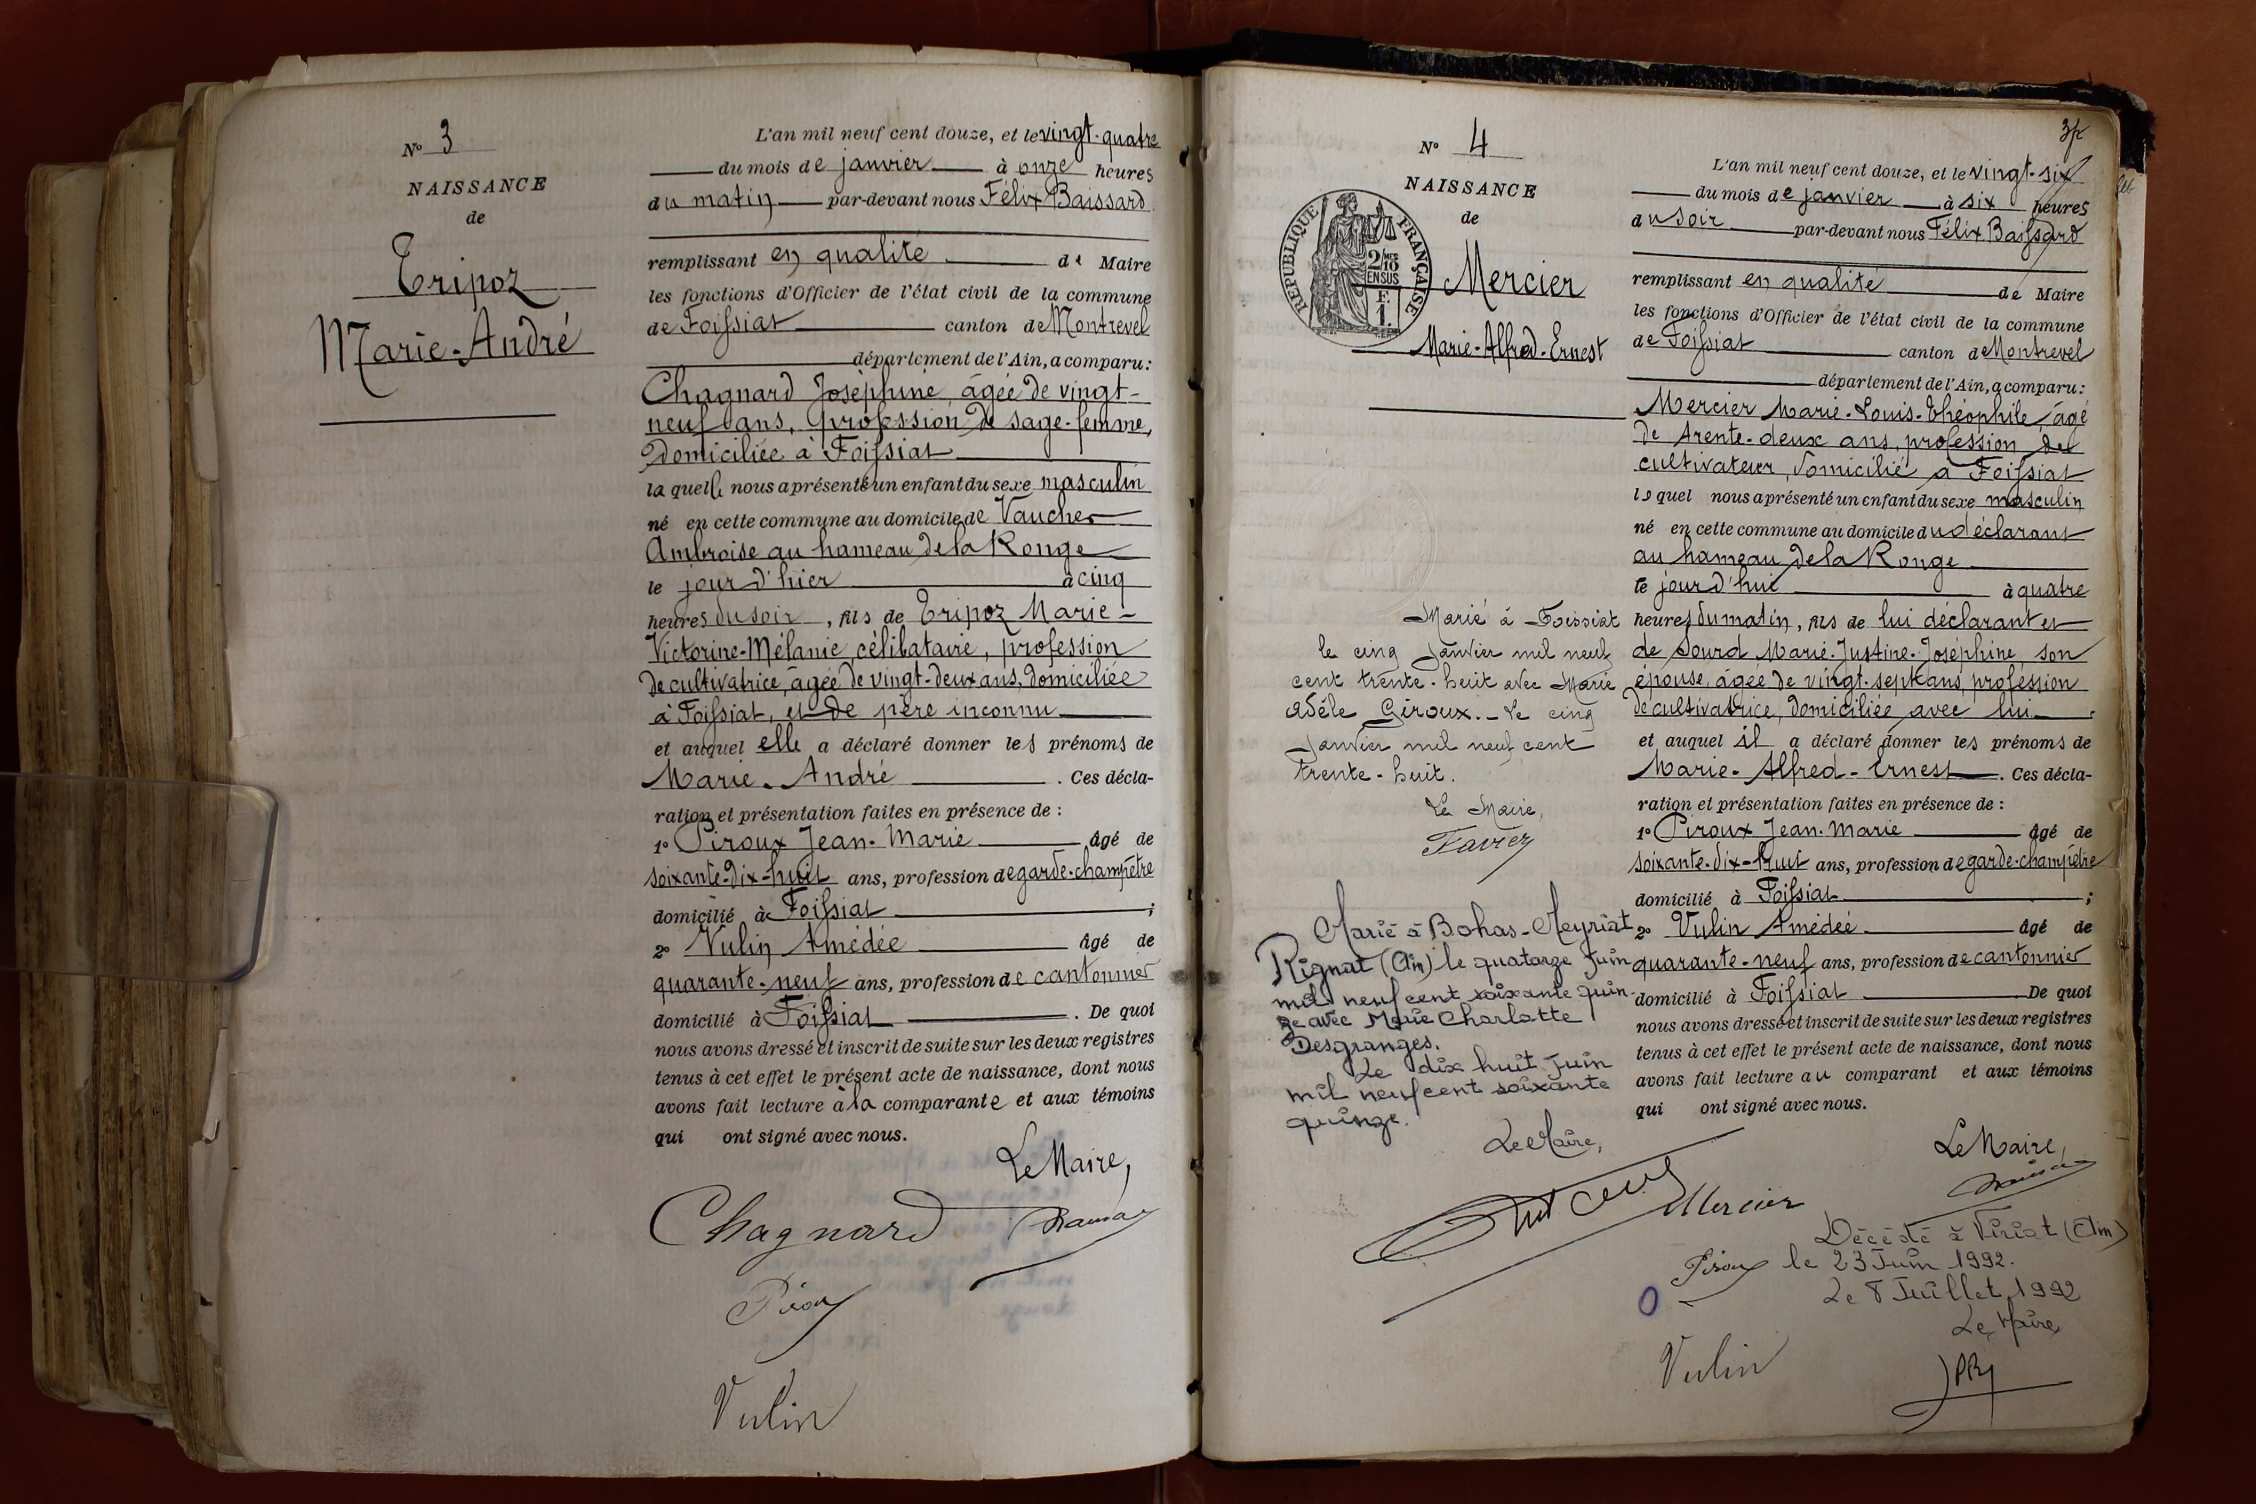 N° 3
NAISSANCE
de
Tripoz
Marie-André
L'an mil neuf cent douze, et le vingt-quatre
du mois de janvier à onze heures
du matin par-devant nous Félix Baissard
remplissant en qualité de Maire
les fonctions d'Officier de l'état civil de la commune
de Foissiat canton de Montrevel
département de l'Ain, a comparu:
Chagnard Joséphine, âgée de vingt-
neuf ans, profession de sage-femme,
domiciliée à Foissiat
laquelle nous a présenté un enfant du sexe masculin
né en cette commune au domicile de Vaucher
Ambroise au hameau de la Ronge
le jour d'hier à cinq
heures du soir, fils de Tripoz Marie-
Victorine-Mélanie célibataire, profession
de cultivatrice, âgée de vingt-deux ans, domiciliée
à Foissiat, et de père inconnu
et auquel elle a déclaré donner les prénoms de
Marie-André. Ces décla-
ration et présentation faites en présence de :
1° Piroux Jean-Marie âgé de
soixante-dix-huit ans, profession de garde-champêtre
domicilié à Foissiat ;
2° Vulin Amédée âgé de
quarante-neuf ans, profession de cantonnier
domicilié à Foissiat. De quoi
nous avons dressé et inscrit de suite sur les deux registres
tenus à cet effet le présent acte de naissance, dont nous
avons fait lecture à la comparante et aux témoins
qui ont signé avec nous.
Le Maire,
Chagnard
Piroux
Vulin
N° 4
NAISSANCE
de
RÉPUBLIQUE FRANÇAISE
2/10
EN SUS
F.
1.
Mercier
Marie-Alfred-Ernest
L'an mil neuf cent douze, et le vingt-six
du mois de janvier à six heures
du soir par-devant nous Félix Baissard
remplissant en qualité de Maire
les fonctions d'Officier de l'état civil de la commune
de Foissiat canton de Montrevel
département de l'Ain, a comparu:
Mercier Marie-Louis-Théophile, âgé
de trente-deux ans, profession de
cultivateur, domicilié à Foissiat
lequel nous a présenté un enfant du sexe masculin
né en cette commune au domicile du déclarant
au hameau de la Ronge
le jour d'hui à quatre
heures du matin, fils de lui déclarant et
de Sourd Marie-Justine-Joséphine, son
épouse, âgée de vingt-sept ans, profession
de cultivatrice, domiciliée avec lui.
et auquel il a déclaré donner les prénoms de
Marie-Alfred-Ernest. Ces décla-
ration et présentation faites en présence de :
1° Piroux Jean-Marie âgé de
soixante-dix-huit ans, profession de garde-champêtre
domicilié à Foissiat ;
2° Vulin Amédée âgé de
quarante-neuf ans, profession de cantonnier
domicilié à Foissiat De quoi
nous avons dressé et inscrit de suite sur les deux registres
tenus à cet effet le présent acte de naissance, dont nous
avons fait lecture au comparant et aux témoins
qui ont signé avec nous.
Le Maire,
Mercier
Piroux
Vulin
Marié à Foissiat
le cinq janvier mil neuf
cent trente-huit avec Marie
Adèle Giroux.- Le cinq
Janvier mil neuf cent
trente-huit.
Le Maire,
Favier
Marié à Bohas-Meyriat
Rignat (Ain) le quatorze Juin
mil neuf cent soixante quin-
ze avec Marie Charlotte
Desgranges.
Le dix huit Juin
mil neuf cent soixante
quinze.
Le Maire,
Décédé à Viriat (Ain)
le 23 Juin 1992.
Le 8 Juillet 1992
Le Maire